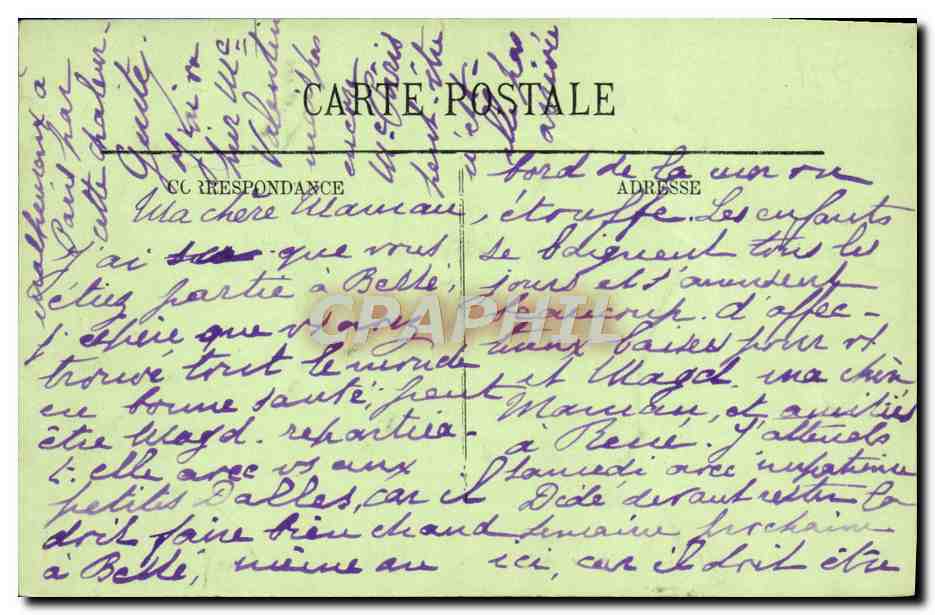 CARTE POSTALE
CORRESPONDANCE
ADRESSE
Ma chère Maman,
J'ai su que vous
étiez partie à Bessé,
j'espère que vs avez
trouvé tout le monde
en bonne santé, peut
être Magd. repartira-
t-elle avec vs aux
petites Dalles, car il
doit faire bien chaud
à Bessé, même au
bord de la mer on
étouffe. Les enfants
se baignent tous les
jours et s'amusent
beaucoup. d'affec-
tueux baisers pour vs
et Magd. ma chère
Maman, et amitiés
à René. J'attends
samedi avec impatience
Dédé devant rester la
semaine prochaine
ici, car il doit être
malheureux à
Paris par
cette chaleur.
J'ai vu
hier Mme
Valentin
mais pas
encore
Mme Paris
peut être
n'est-
elle pas
arrivée
CRAPHIL